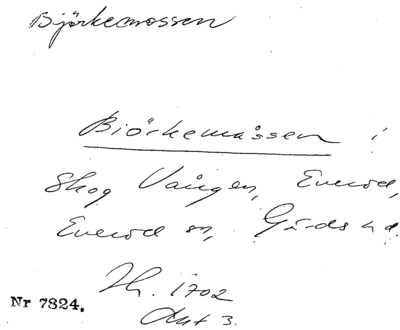 Björkemossen
Biörkemåssen i
Skog Vången, Everöd,
Everöd sn, Gärds hd.
Th. 1702
Akt 3.
Nr 7824.